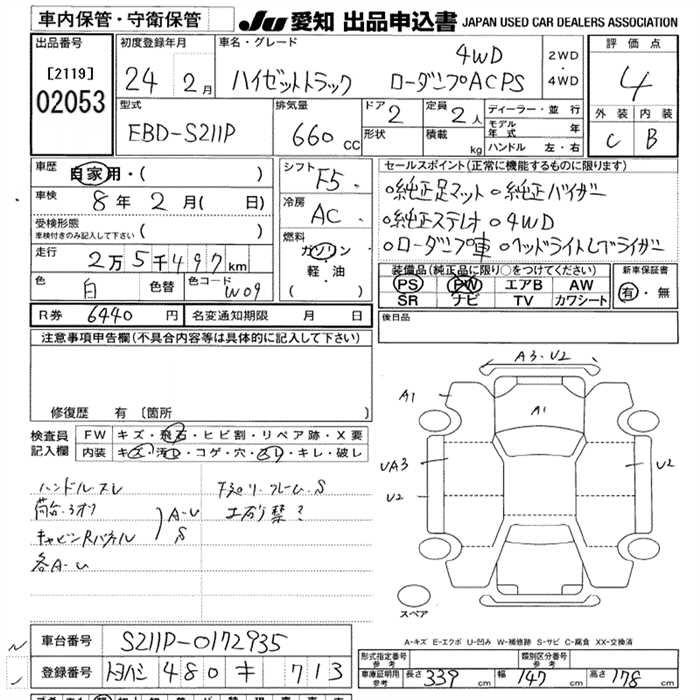 車内保管・守衛保管 JU 愛知 出品申込書 JAPAN USED CAR DEALERS ASSOCIATION
出品番号
[2119]
02053
初度登録年月
24年 2月
車名・グレード
4WD
ハイゼットトラック ローダンプACPS
2WD・4WD
評価点
4
外装 内装
C B
型式
EBD-S211P
排気量
660 CC
ドア 2
形状
定員 2人
積載 kg
ディーラー・並行
モデル年式 年
ハンドル 左・右
車歴 自家用・( )
車検 8年 2月( 日)
受検形態
車検付きのみ記入して下さい ( )
走行 2万5千497km
色 白 色替 色コード W09
シフト F5
冷房 AC
燃料
ガソリン
軽・油
( )
セールスポイント(正常に機能するものに限ります)
○純正足マット ○純正バイザー
○純正ステレオ ○4WD
○ローダンプ車 ○ヘッドライトレブライザー
装備品(純正品に限り○をつけてください)
PS PW エアB AW
SR ナビ TV カワシート
新車保証書
有・無
R券 6440円 名変通知期限 月 日
後日品
注意事項申告欄(不具合内容等は具体的に記入して下さい)
修復歴 有 [箇所 ]
検査員記入欄
FW キズ・飛石・ヒビ割・リペア跡・X要
内装 キズ・汚れ・コゲ・穴・スレ・キレ・破レ
ハンドルスレ
荷台 A-U
キャビンRパネル S
各A-U
フレーム S
A3・U2
A1
A1
UA3
U2
U2
スペア
A-キズ E-エクボ U-凹み W-補修跡 S-サビ C-腐食 XX-交換済
車台番号 S211P-0172935
登録番号 トヨハシ 480 キ 713
型式指定番号
参考
類別区分番号
参考
車庫証明用
参考
長さ 339 cm 幅 147 cm 高さ 178 cm